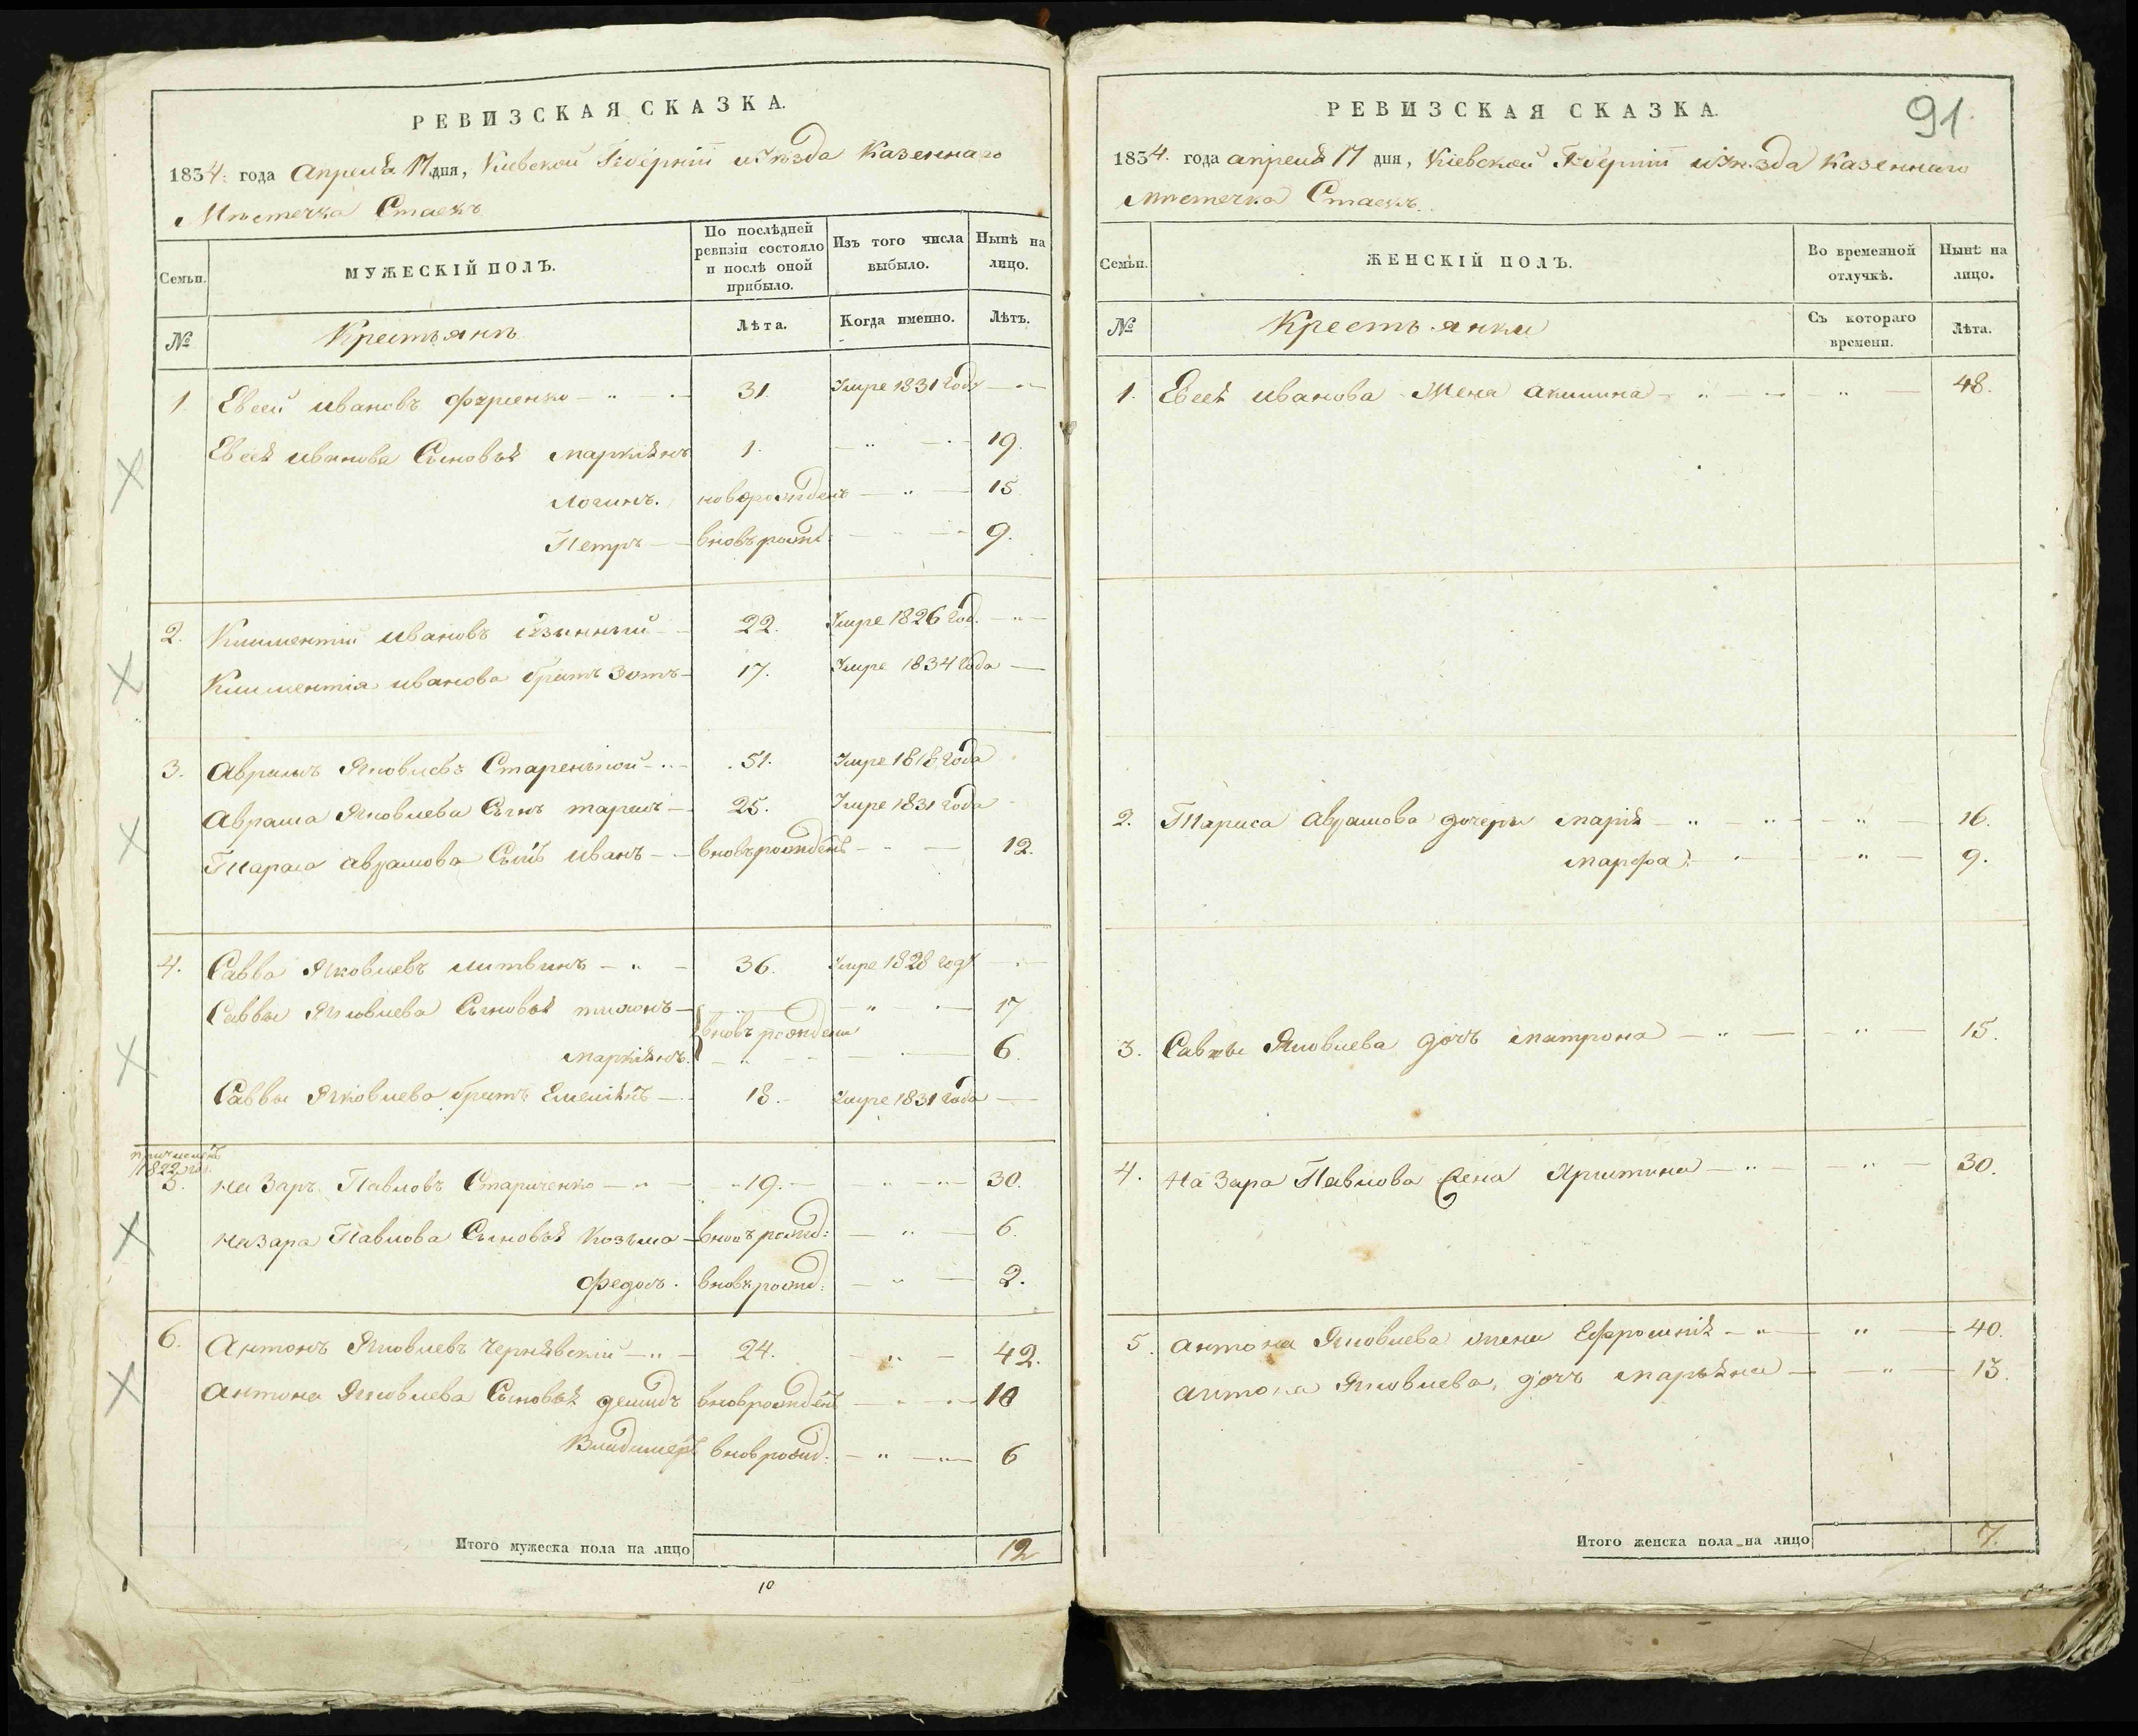 РЕВИЗСКАЯ СКАЗКА.
1834. года Апреля 17 дня, Киевской Губерніи и уѣзда Казеннаго
Мѣстечка Стаекъ
Семьи.
МУЖЕСКІЙ ПОЛЪ.
По послѣдней ревизіи состояло и послѣ оной прибыло.
Изъ того числа выбыло.
Нынѣ на лицо.
№
Крестьянъ
Лѣта.
Когда именно.
Лѣтъ.
1. Евсей Ивановъ 31. Умре 1831 году
Евсея Иванова Сыновья Маркіянъ 1. 19.
Логинъ. новорожденъ 15
Петръ вновь рожд: 9.
2. Климентий Ивановъ 22. Умре 1826 год.
Климентія Иванова братъ Зотъ 17. Умре 1834 года
3. Аврамъ Яковлевъ Старенькой 51. Умре 1818 года
Аврама Яковлева Сынъ Тарасъ 25. Умре 1831 года
Тараса Аврамова Сынъ Иванъ вновь рожденъ 12.
4. Савва Яковлевъ Литвинъ 36. Умре 1828 году
Саввы Яковлева Сыновья Тихонъ 17
вновь рождени
Маркіянъ. 6.
Саввы Яковлева братъ Емельянъ 18. Умре 1831 года
причисленъ
1822 го:
5. Назаръ Павловъ Стариченко 19. 30.
Назара Павлова Сыновья Козьма вновь рожд: 6.
Федосъ. вновь рожд: 2.
6. Антонъ Яковлевъ Чернявскій 24. 42.
Антона Яковлева Сыновья Демидъ внов рожденъ 10
Владимеръ внов рожд: 6
Итого мужеска пола на лицо 12
10
91.
РЕВИЗСКАЯ СКАЗКА.
1834. года апреля 17 дня, Кіевской Губерніи и уѣзда Казеннаго
Мѣстечка Стаекъ.
Семьи.
ЖЕНСКІЙ ПОЛЪ.
Во временной отлучкѣ.
Нынѣ на лицо.
№
Крестьянки
Съ котораго времени.
Лѣта.
1. Евсея Иванова Жена Акилина 48.
2. Тараса Аврамова дочери Марія 16.
Марфа 9.
3. Саввы Яковлева дочь Матрона 15.
4. Назара Павлова жена 30.
5. Антона Яковлева жена Ефросинія 40.
Антона Яковлева, дочь Марьяна 13.
Итого женска пола на лицо 7.